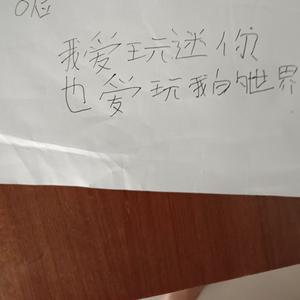 我爱玩迷你
也爱玩我的世界